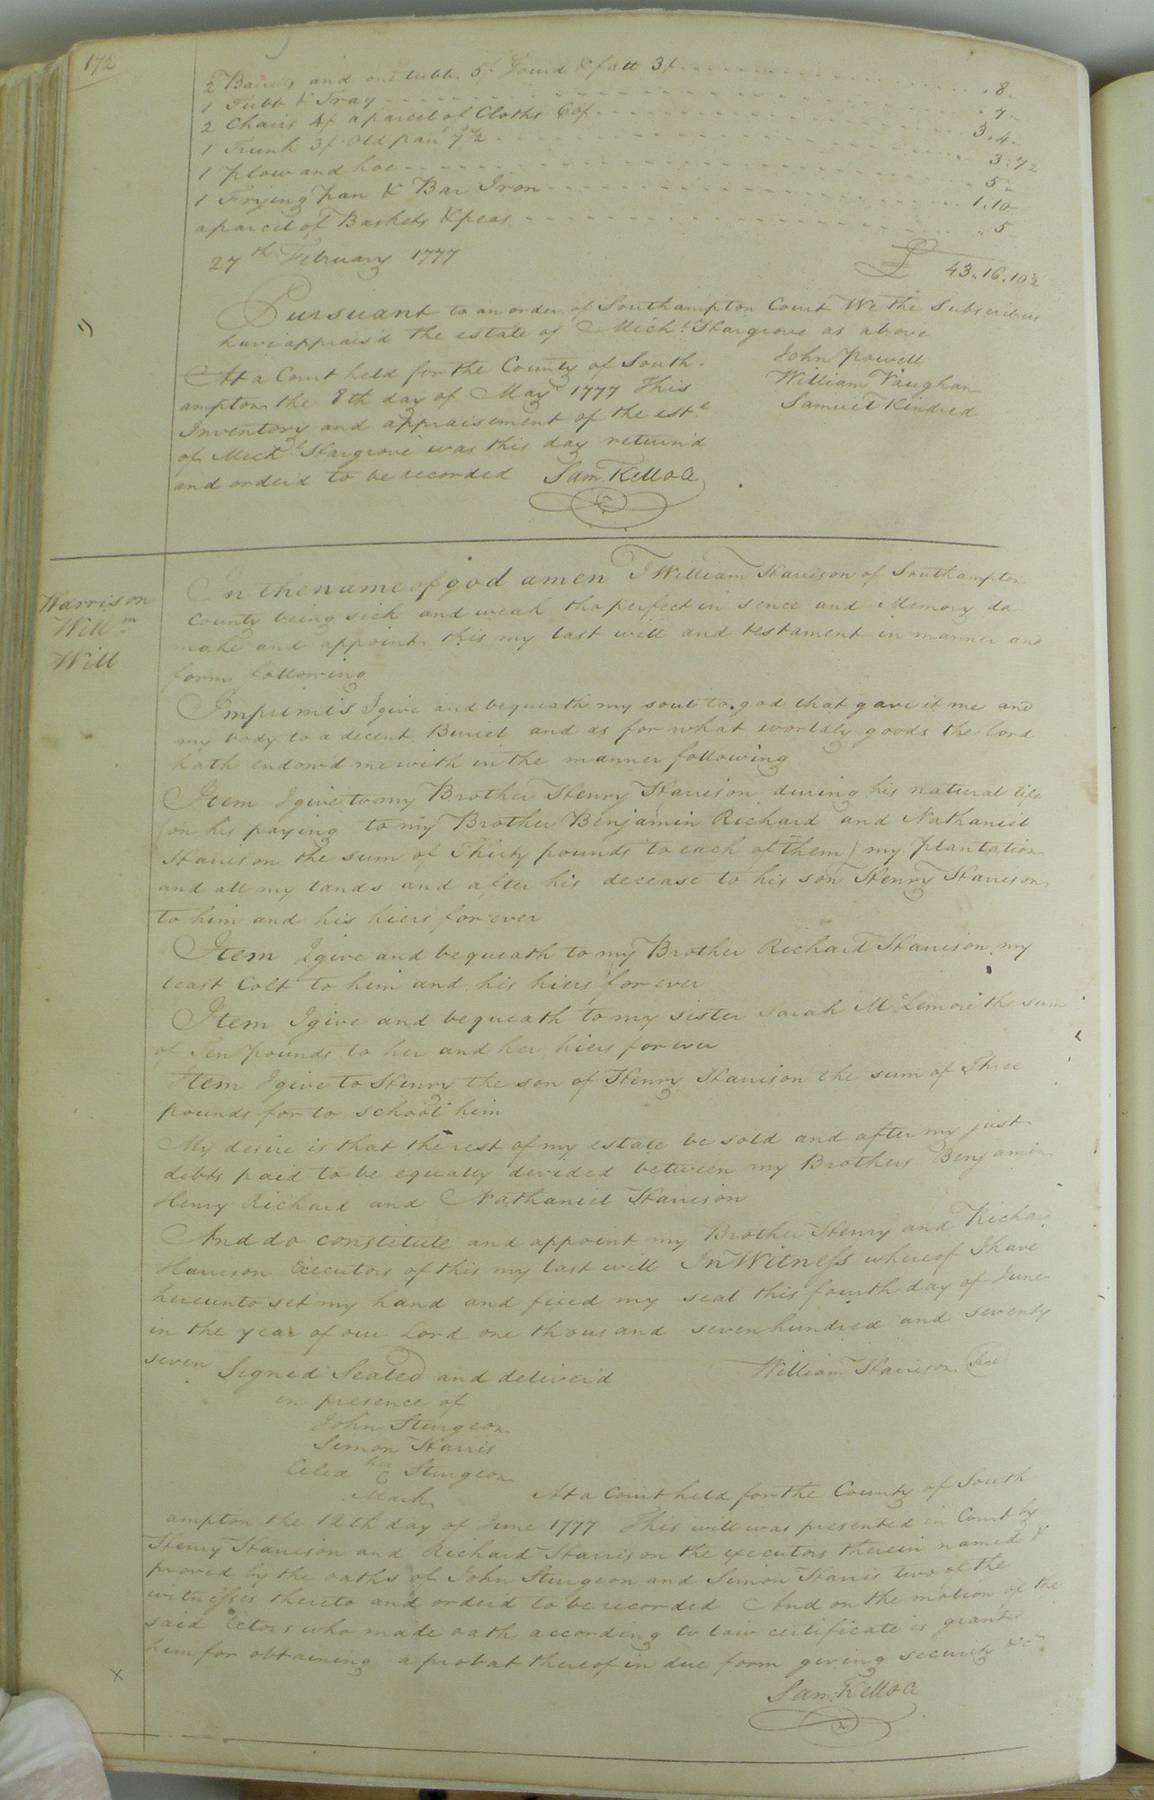 172
2 Barrels and one tubb 5/ Gourd & fatt 3/ . 8 .
1 Tubb & Tray . 7 .
2 Chairs 4/ a parcel of Cloths 60/ 3 . 4 .
1 Trunk 3/ old pan 7½ . 3 . 7½
1 plow and hoe . 5 .
1 Frying pan & Bar Iron 1 . 10
a parcel of Baskets & peas . 5
27th February 1777 £ 43 . 16 . 10½
Pursuant to an order of Southampton Court We the Subscribers
have apprais'd the estate of Michl. Hargrove as above
John Powell
William Vaughan
Samuel Kindred
At a Court held for the County of South-
ampton the 8th day of May 1777 This
Inventory and appraisement of the este
of Michl. Hargrove was this day return'd
and order'd to be recorded Sam Kello Cl
Harrison
Willm
Will
In the name of god amen I William Harrison of Southampton
County being sick and weak tho perfect in sence and Memory do
make and appoint this my last will and testament in manner and
form following
Imprimis I give and bequeath my soul to god that gave it me and
my body to a decent Buriel and as for what worldly goods the lord
hath endow'd me with in the manner following
Item I give to my Brother Henry Harrison during his natural life
(on his paying to my Brother Benjamin Richard and Nathaniel
Harrison the sum of Thirty pounds to each of them) my plantation
and all my lands and after his decease to his son Henry Harrison
to him and his hiers for ever
Item I give and bequeath to my Brother Richard Harrison my
least Colt to him and his hiers for ever
Item I give and bequeath to my sister Sarah McLemore the sum
of Ten pounds to her and her hiers for ever
Item I give to Henry the son of Henry Harrison the sum of Three
pounds for to school him
My desire is that the rest of my estate be sold and after my just
debts paid to be equally devided between my Brothers Benjamin
Henry Richard and Nathaniel Harrison
And do constitute and appoint my Brother Henry and Richard
Harrison Executors of this my last will In Witness whereof I have
hereunto set my hand and fixed my seal this fourth day of June
in the year of our Lord one thousand seven hundred and seventy
seven William Harrison Seal
Signed Sealed and deliver'd
in presence of
John Sturgeon
Simon Harris
Celea her C Sturgeon
Mark
At a Court held for the County of South
ampton the 12th day of June 1777 This will was presented in Court by
Henry Harrison and Richard Harrison the executors therein named &
proved by the oaths of John Sturgeon and Simon Harris two of the
witnesses thereto and order'd to be recorded And on the motion of the
said Ectors who made oath according to law certificate is granted
him for obtaining a probat thereof in due form giving security &c.
Sam Kello Cl
x